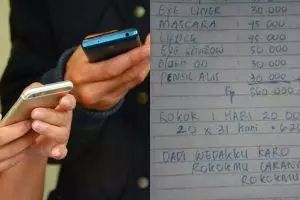 EYE LINER 30.000
MASCARA 45.000
LIPICE 45.000
EYE SHADOW 50.000
BLUSH ON 30.000
PENSIL ALIS 30.000
Rp 360.000
ROKOK 1 HARI 20.00
20 X 31 HARI = 62
DADI WEDAKKU KARO
ROKOKMU LARANG
ROKOKMU